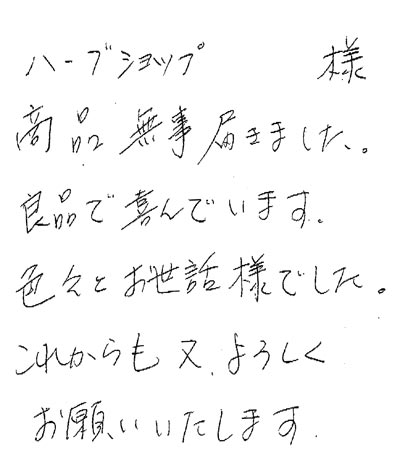 ハーブショップ 様
商品無事届きました。
良品で喜んでいます.
色々とお世話様でした。
これからも又、よろしく
お願いいたします.